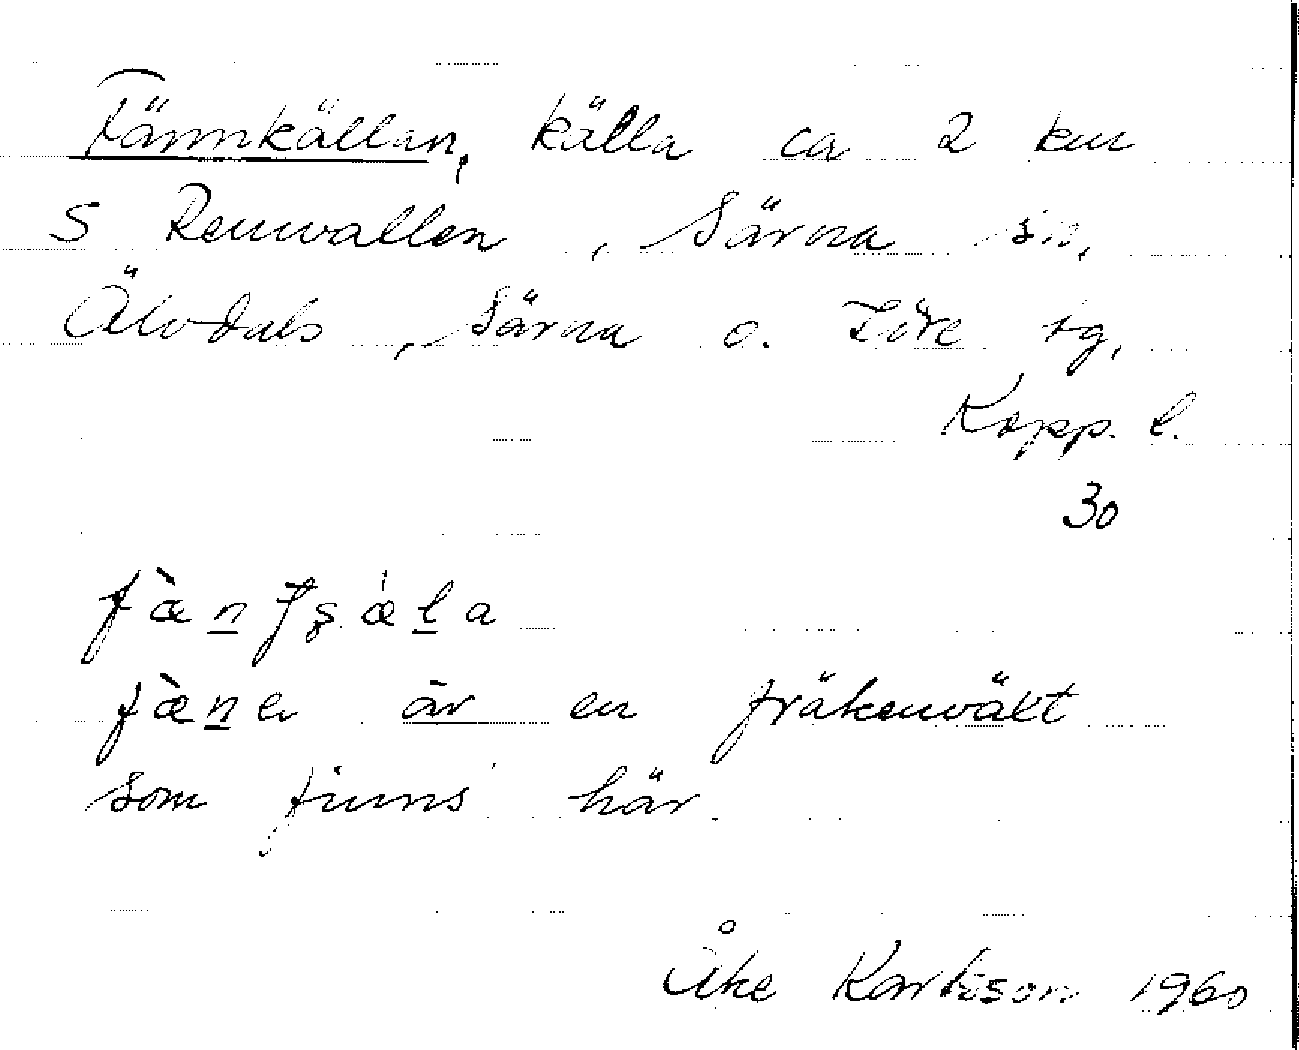 Fännkällan, källa ca 2 km
S Renvallen, Särna sn,
Älvdals, Särna o. Idre tg,
Kopp. l.
30
är en fräkenväxt
som finns här.
Åke Karlsson 1960